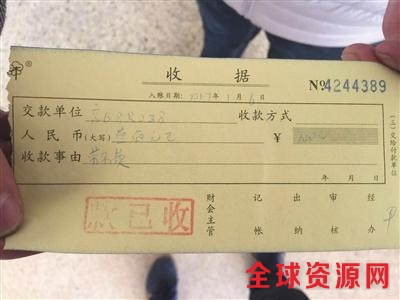 收 据
№4244389
入账日期：2017年1月6日
交款单位 收款方式
人民币(大写) 伍佰元正 ￥
收款事由
年 月 日
(三)交给付款单位
财会主管 记帐 出纳 审核 经办
款已收
全球资源网